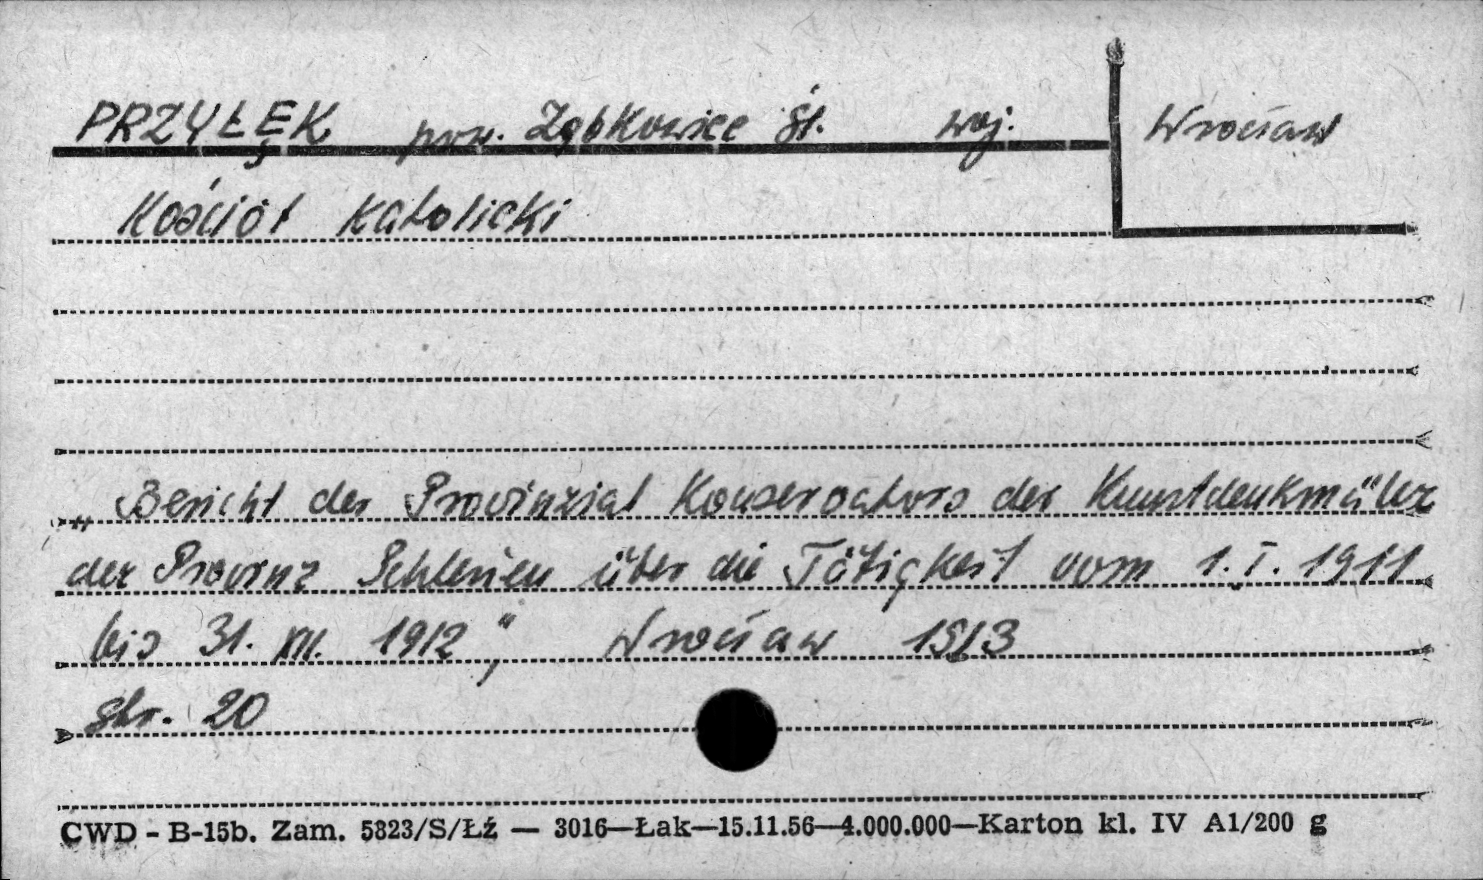 PRZYŁĘK pow. Ząbkowice Śl. woj. Wrocław
Kościół Katolicki
„Bericht des Provinzial Konservators der Kunstdenkmäler
der Provinz Schlesien über die Tätigkeit vom 1. I. 1911
bis 31. XII. 1912", Wrocław 1913
str. 20
CWD - B-15b. Zam. 5823/S/Łź — 3016—Łak—15.11.56—4.000.000—Karton kl. IV A1/200 g